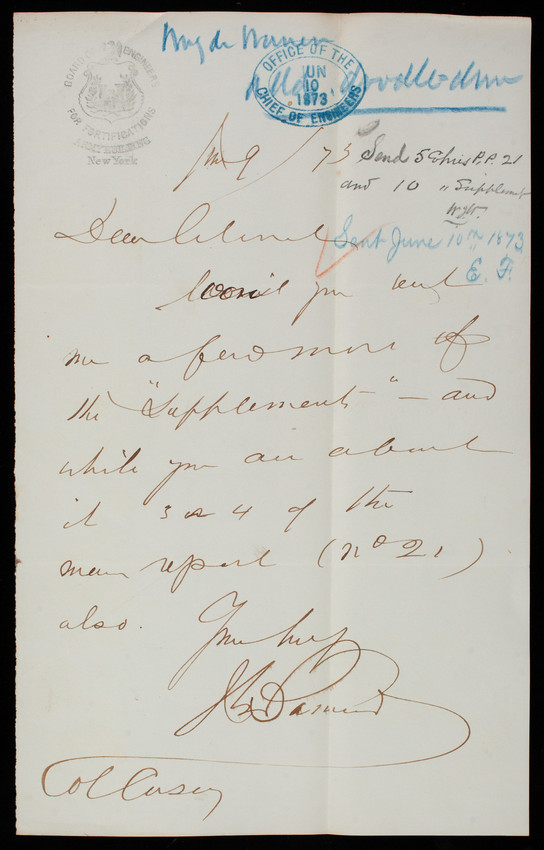 BOARD OF ENGINEERS
FOR FORTIFICATIONS
ARMY BUILDING
New York
OFFICE OF THE
JUN
10
1873
CHIEF OF ENGINEERS
June 9 / 73
Send 5 P.P. 21
and 10 " Supplement
Sent June 10th 1873
E. F.
Dear Colonel
Won't you send
me a few more of
the "Supplements" - and
while you are about
it 3 or 4 of the
main report (No 21)
also.
Yours truly
J G Barnard
Col Casey